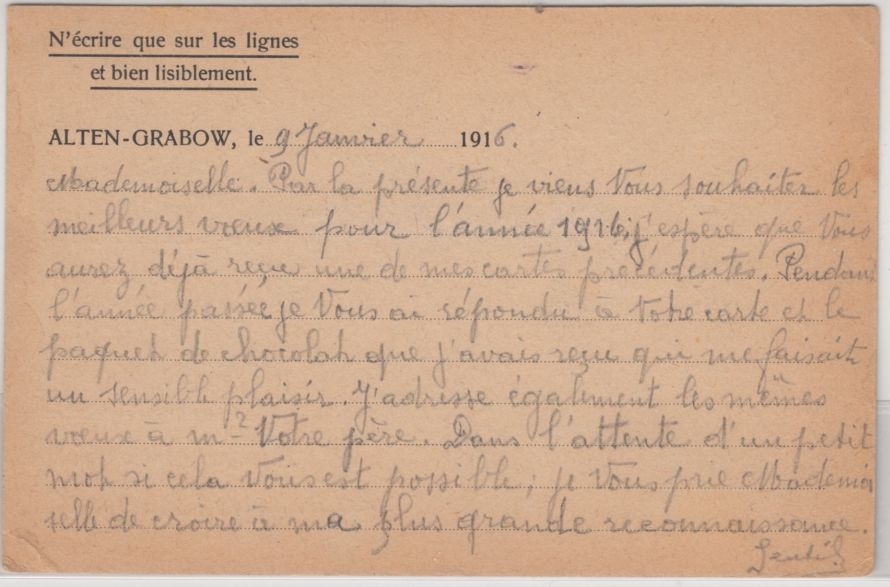 N'écrire que sur les lignes
et bien lisiblement.
ALTEN-GRABOW, le 9 Janvier 1916.
Mademoiselle. Par la présente je viens Vous souhaiter les
meilleurs vœux pour l'année 1916, j'espère que Vous
aurez déjà reçu une de mes cartes précédentes. Pendant
l'année passée, je Vous ai répondu à Votre carte et le
paquet de chocolat que j'avais reçu qui me faisait
un sensible plaisir. J'adresse également les mêmes
vœux à mr Votre père. Dans l'attente d'un petit
mot si cela Vous est possible, je Vous prie Mademoi
selle de croire à ma plus grande reconnaissance.